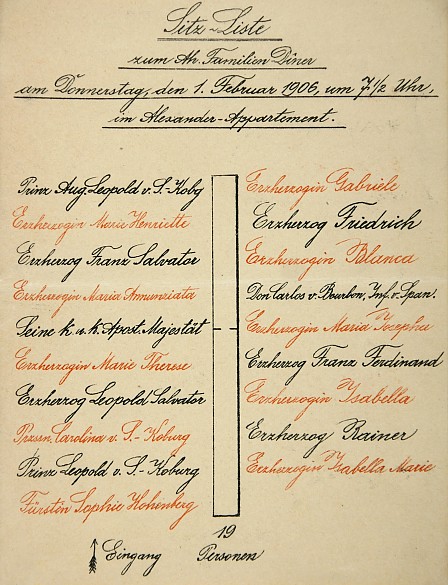 Sitz-Liste
zum Ah. Familien Dîner
am Donnerstag, den 1. Februar 1906, um 7 1/2 Uhr,
im Alexander-Appartement.
Prinz Aug. Leopold v. S.-Kobg
Erzherzogin Marie Henriette
Erzherzog Franz Salvator
Erzherzogin Maria Annunziata
Seine k. u. k. Apost. Majestät
Erzherzogin Marie Therese
Erzherzog Leopold Salvator
Przssn. Carolina v. S.-Koburg
Prinz Leopold v. S.-Koburg
Fürstin Sophie Hohenberg
Erzherzogin Gabriele
Erzherzog Friedrich
Erzherzogin Blanca
Don Carlos v. Bourbon, Inf. v. Span.
Erzherzogin Maria Josepha
Erzherzog Franz Ferdinand
Erzherzogin Isabella
Erzherzog Rainer
Erzherzogin Isabella Marie
Eingang
19
Personen